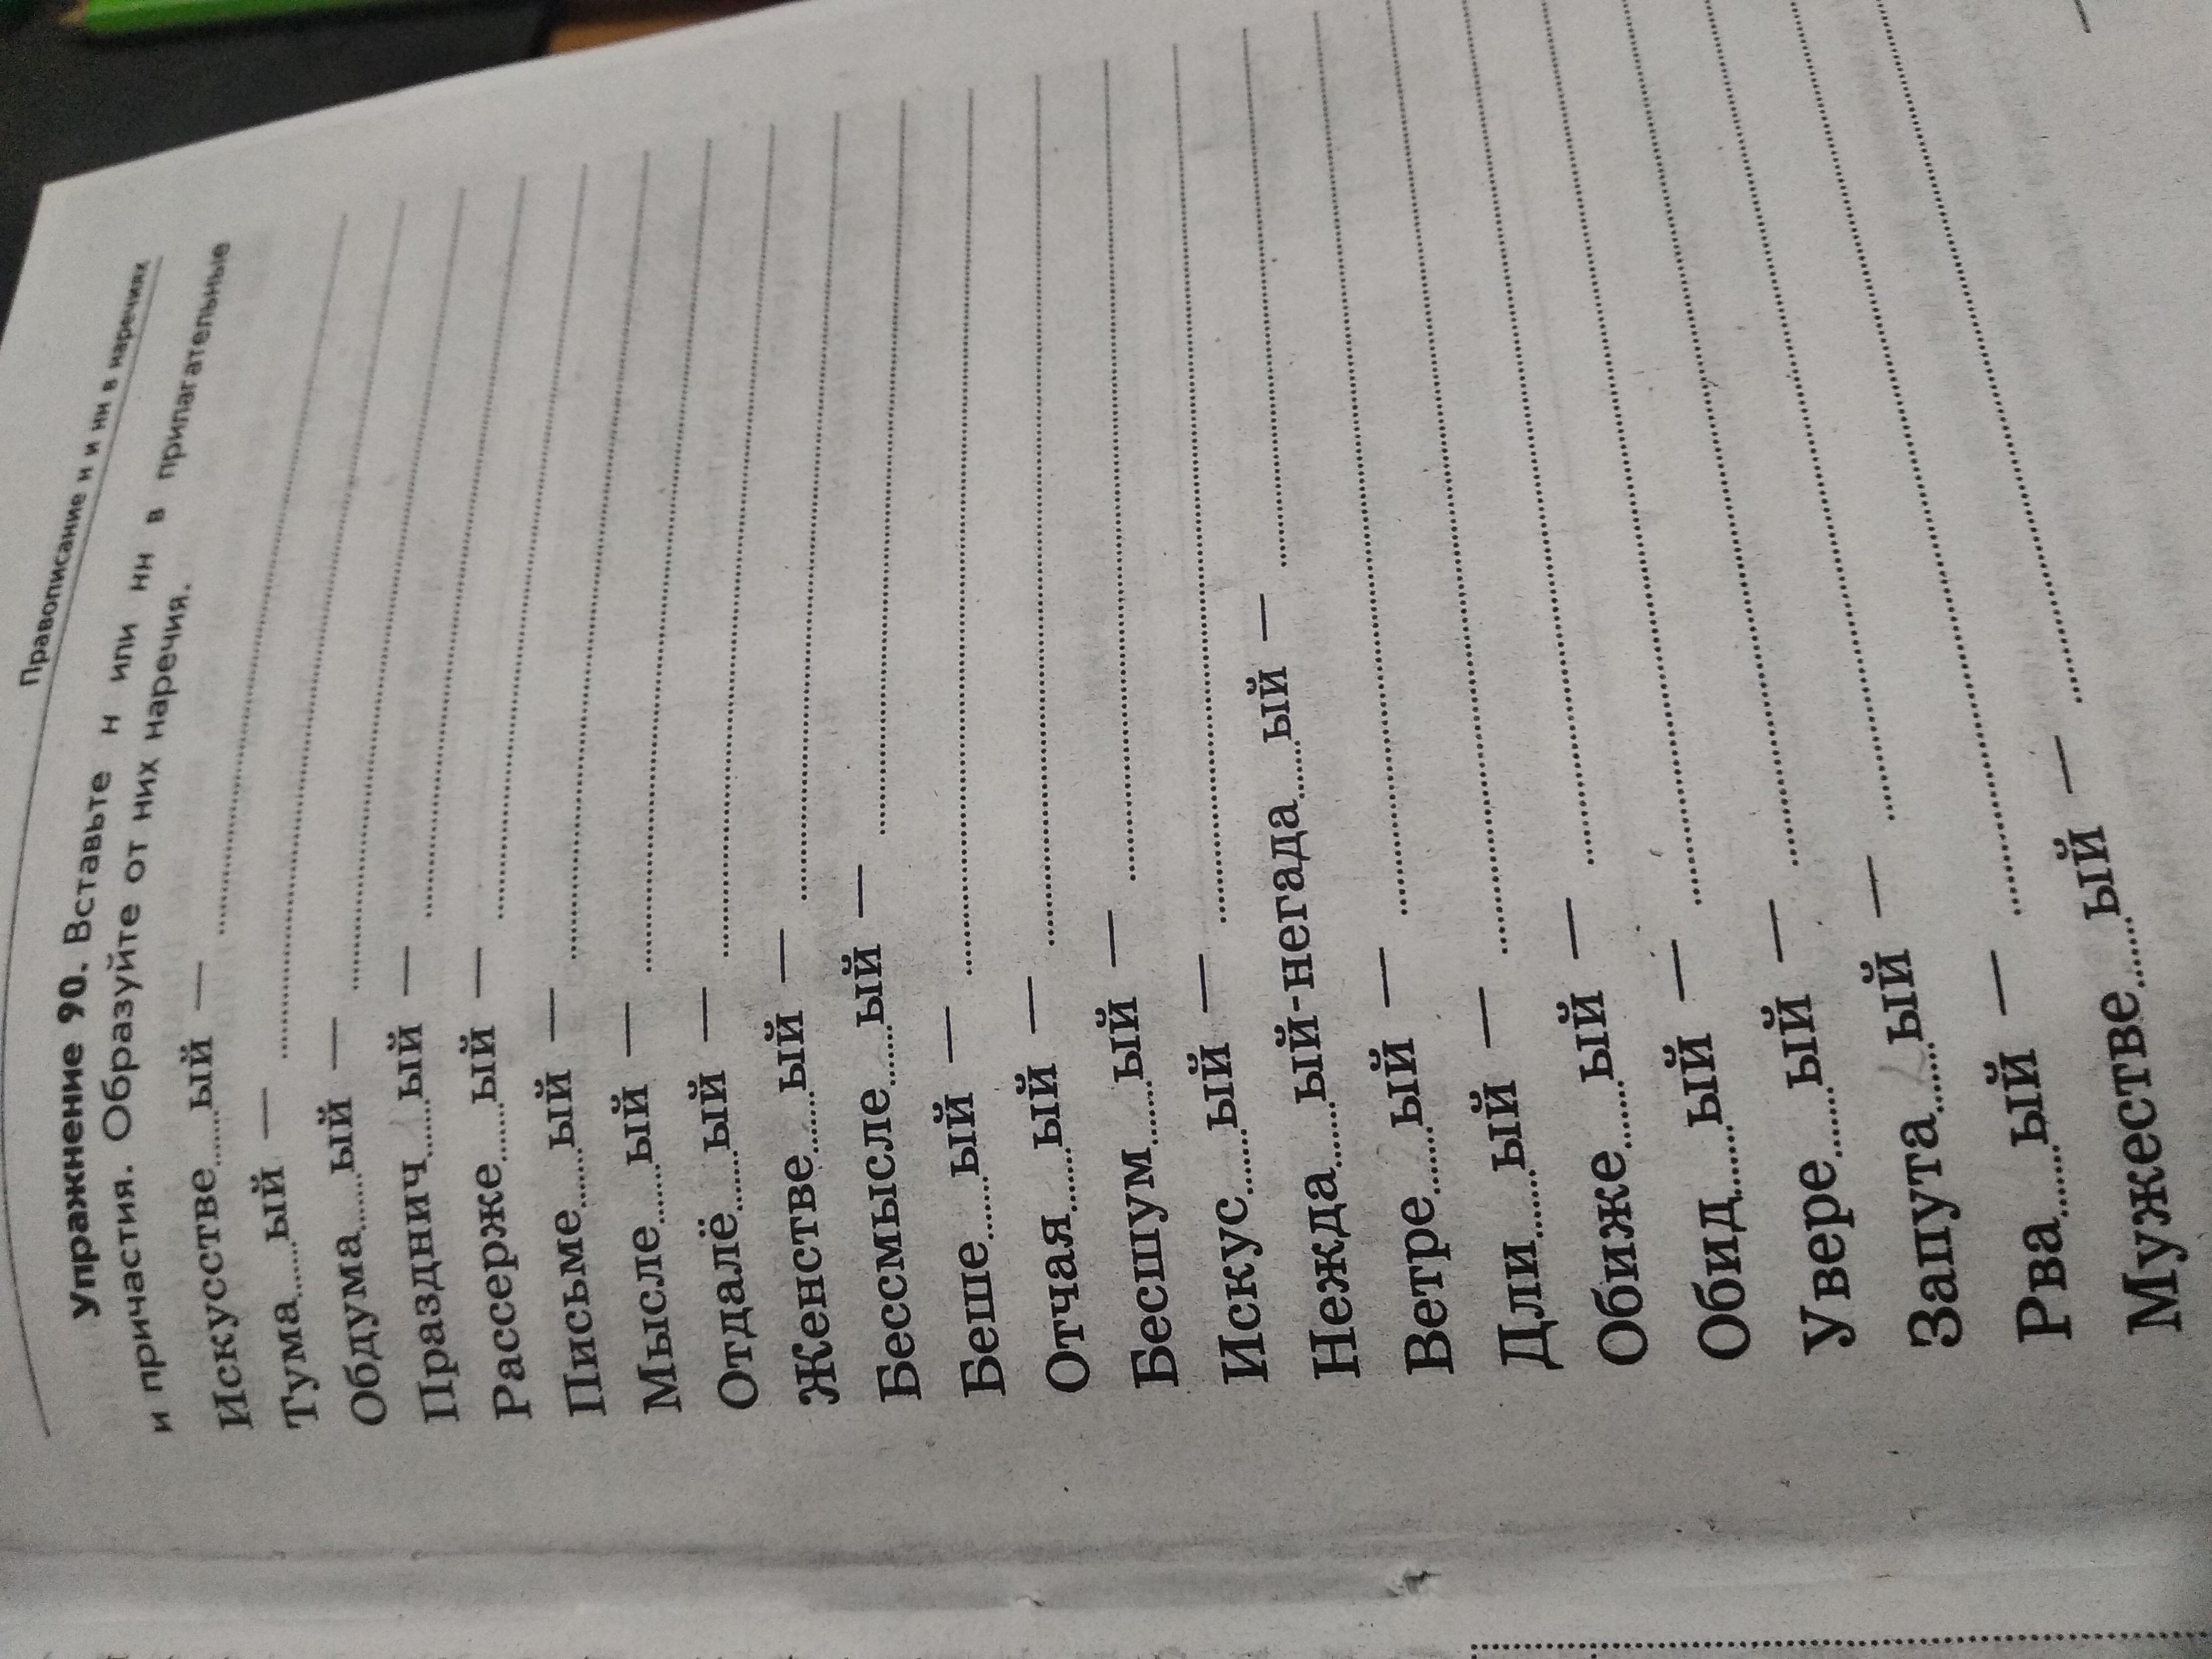 Правописание н и нн в наречиях
Упражнение 90. Вставьте н или нн в прилагательные
и причастия. Образуйте от них наречия.
Искусстве......ый —
Тума......ый —
Обдума......ый —
Празднич......ый —
Рассерже......ый —
Письме......ый —
Мысле......ый —
Отдалё......ый —
Женстве......ый —
Бессмысле......ый —
Беше......ый —
Отчая......ый —
Бесшум......ый —
Искус......ый —
Нежда......ый-негада......ый —
Ветре......ый —
Дли......ый —
Обиже......ый —
Обид......ый —
Увере......ый —
Запута......ый —
Рва......ый —
Мужестве......ый —